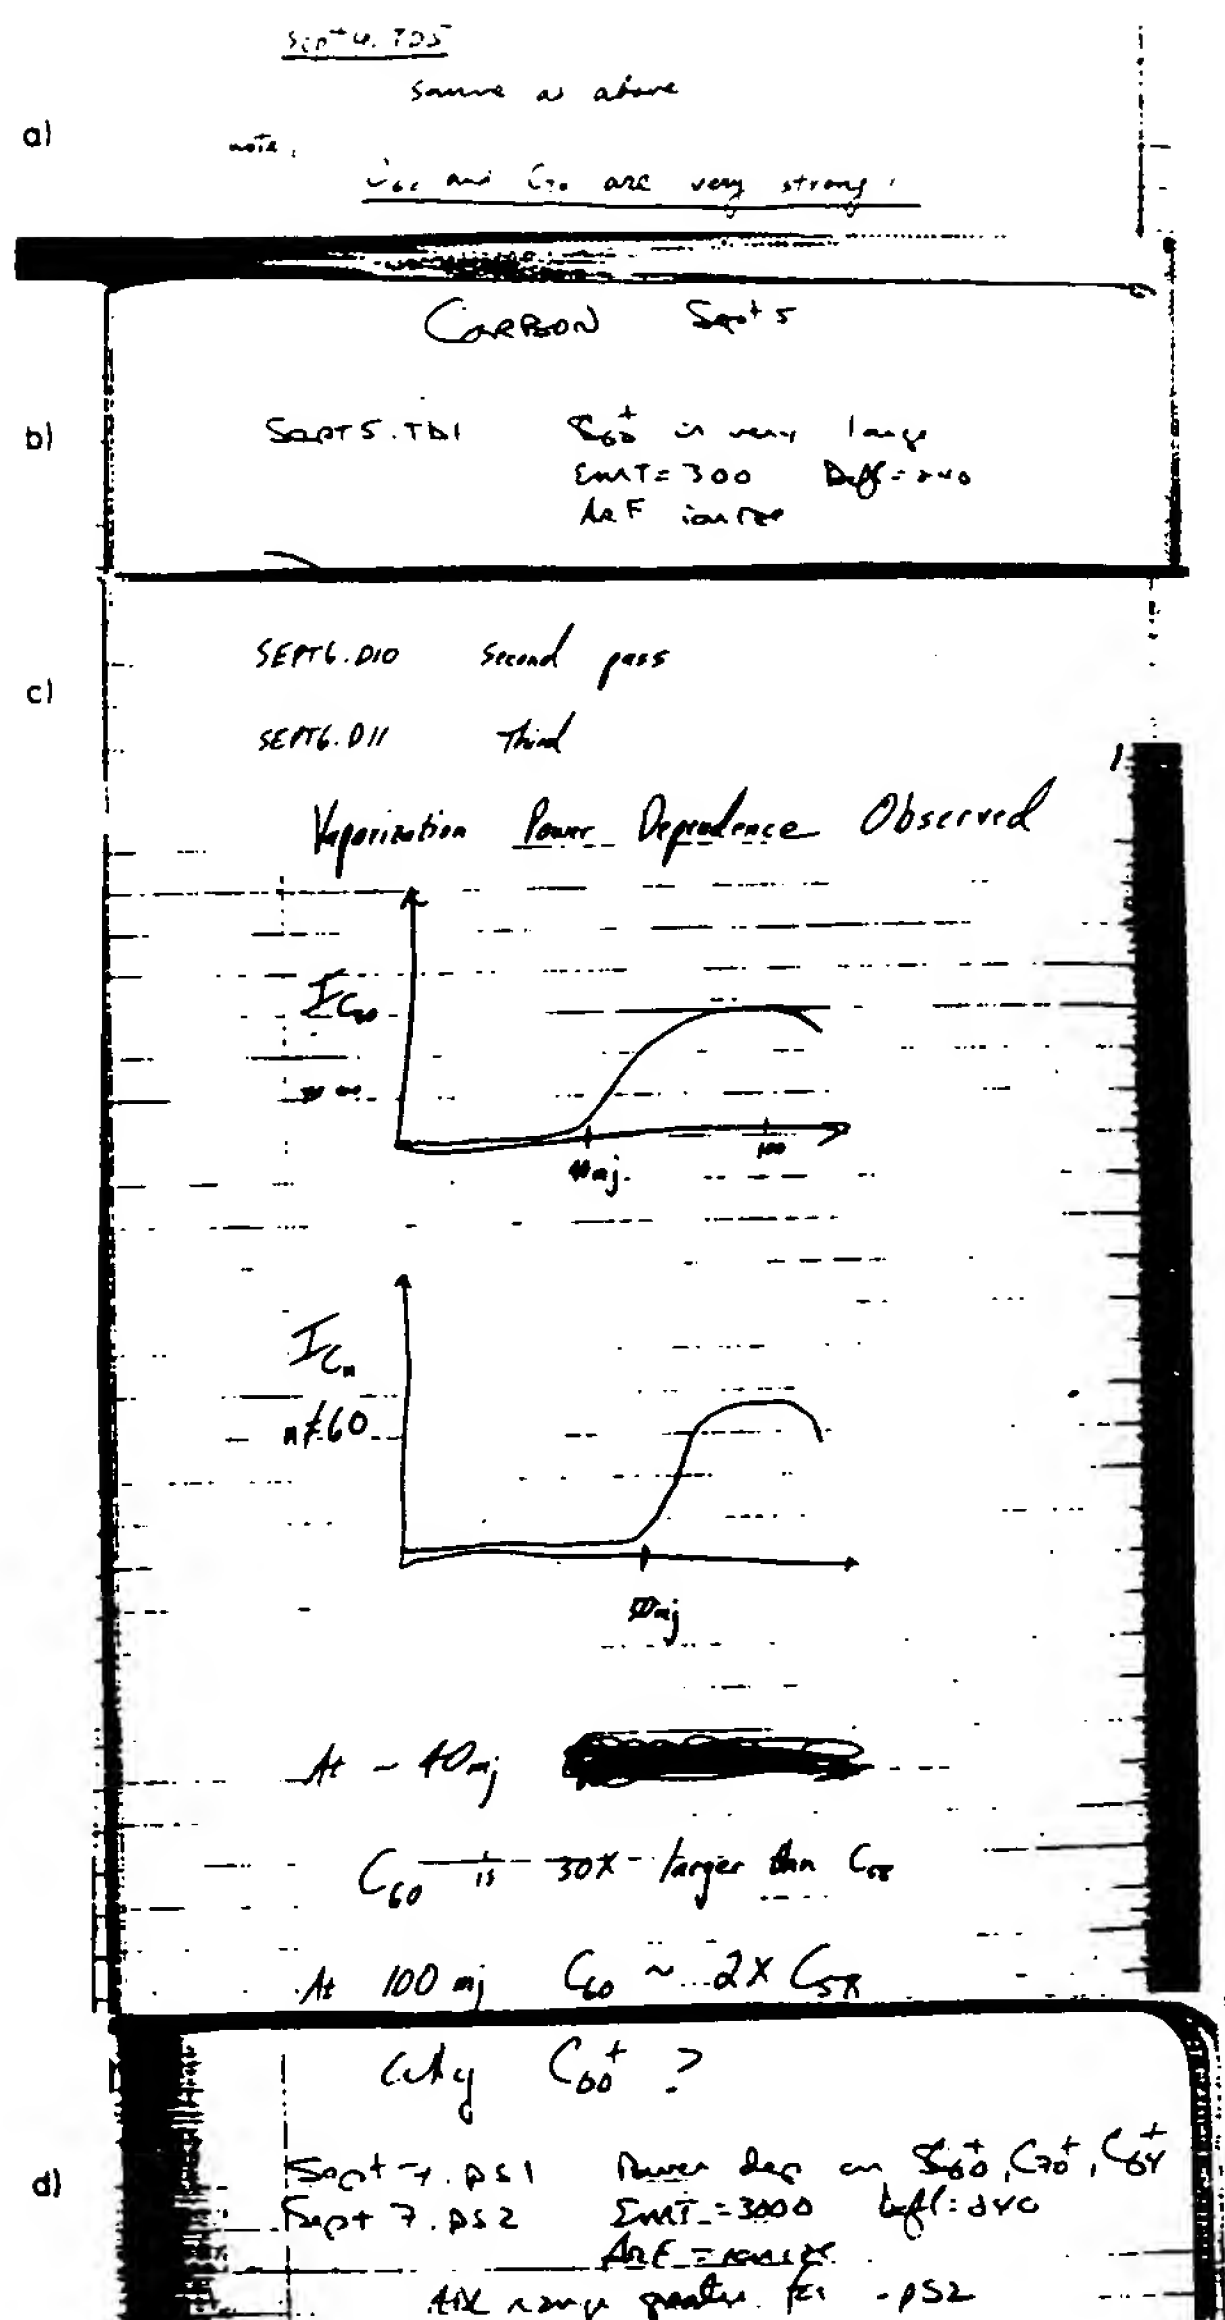 Sept 4. TD5
Same as above
a)
note:
C60 and C70 are very strong!
CARBON Sept 5
b)
Sept 5. TD1 C60+ is very large
EMT=300 Defl=240
ArF ionize
SEPT6.D10 Second pass
c)
SEPT6.D11 Third
Vaporization Power Dependence Observed
I C60
40mj. 100
I Cn
n≠60
mj
At ~ 40mj
C60 is 30X larger than C58
At 100 mj C60 ~ 2X C58
Why C60+ ?
d)
Sept 7. PS1 Power dep on C60+, C70+, C64+
Sept 7. PS2 EMT = 3000 Defl: 240
ArF = ionize
range greater for .PS2